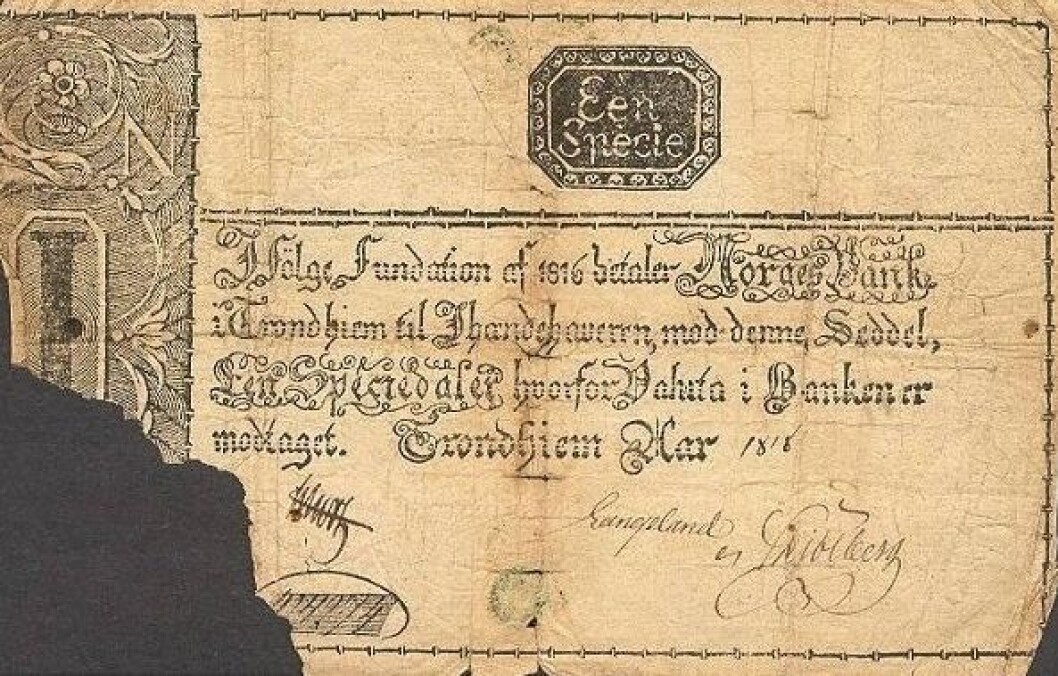 Een
Specie
I fölge Fundation af 1816 betaler Norges Bank
i Trondhiem til Ihændehaveren, mod denne Seddel,
Een Speciedaler hvorfor Valuta i Banken er
modtaget. Trondhiem Aar 1818